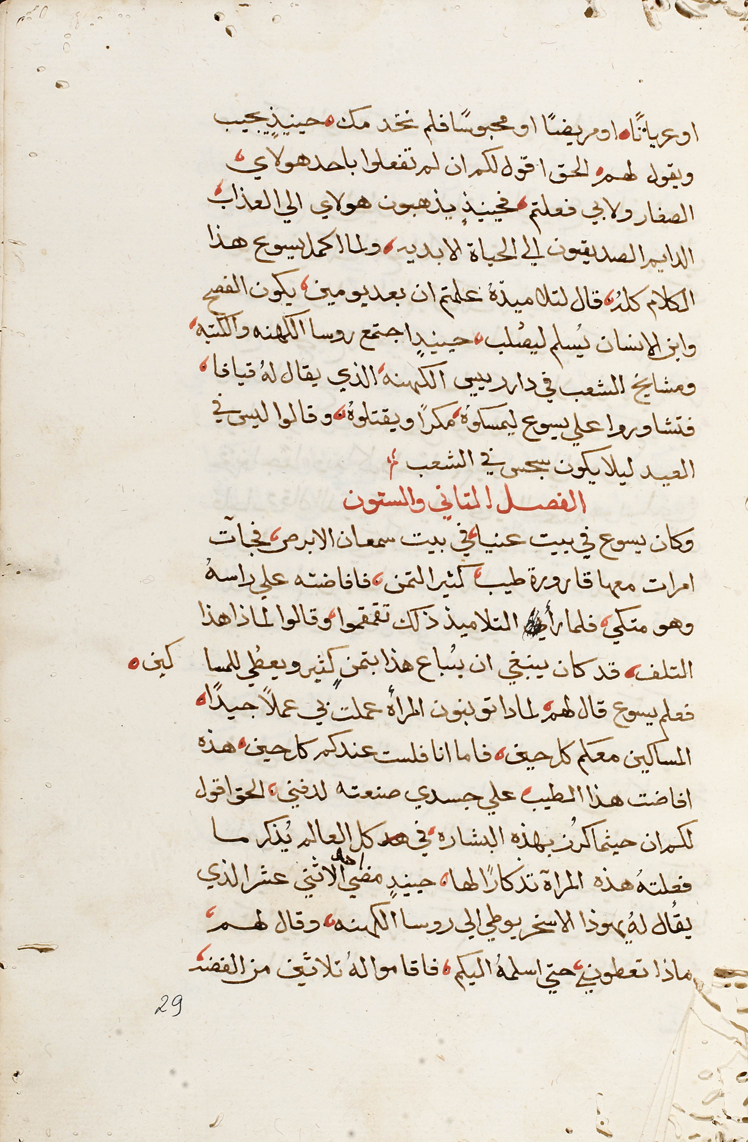 او عريانًا او مريضًا او محبوسًا فلم نخدمك حينيذٍ يجيب
ويقول لهم الحق اقول لكم ان لم تفعلوا باحد هولاي
الصغار ولا بي فعلتم فحينيذٍ يذهبون هولاي الي العذاب
الدايم والصديقون الي الحياة الابديه ولما اكمل يسوع هذا
الكلام كلهُ قال لتلاميذهُ علمتم ان بعد يومين يكون الفصح
وابن الانسان يُسلم ليُصلب حينيدٍ اجتمع روسا الكهنه والكتبه
ومشايخ الشعب في دار رييس الكهنه الذي يقال لهُ قيافا
فتشاوروا علي يسوع ليمسكوهُ مكرًا ويقتلوهُ وقالوا ليس في
العيد ليلا يكون سجس في الشعب
الفصل التاني والستون
وكان يسوع في بيت عنيا في بيت سمعان الابرص فجآت
امرات معها قارورة طيب كثير التمن فافاضته علي راسهُ
وهو متكي فلما رأي التلاميذ ذلك تقمقموا وقالوا لماذا هذا
التلف قد كان ينبغي ان يُباع هذا بتمنٍ كثير ويعطي للمسا كين
فعلم يسوع قال لهم لمادا توبنون المرأه عملت بي عملاً جيدًا
المساكين معكم كل حين فاما انا فلست عندكم كل حين هذه
افاضت هذا الطيب علي جسدي صنعته لدفني الحق اقول
لكم ان حيثما كُرز بهذه البشاره في كل العالم يُذكر ما
فعلتهُ هذه المرآة تذكارًا لها حينيدٍ مضي احد الاثني عشر الذي
يقُال لهُ يهوذا الاسخريوطي الي روسا الكهنه وقال لهم
ماذا تعطوني حتي اسلمهُ اليكم فاقاموا لهُ تلاثين من الفضه
29